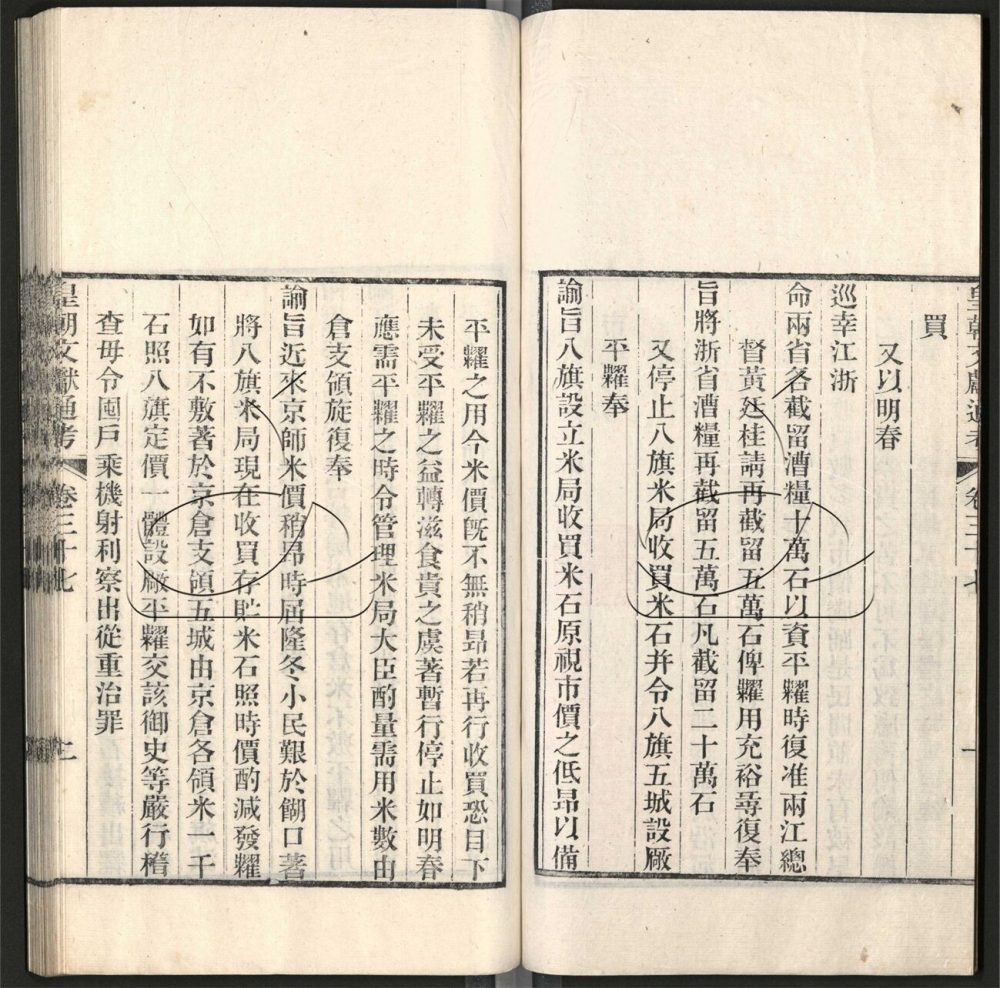 皇朝文獻通考 卷三十七 一
買
又以明春
巡幸江浙
命兩省各截留漕糧十萬石以資平糶時復准兩江總
督黃廷桂請再截留五萬石俾糶用充裕尋復奉
旨將浙省漕糧再截留五萬石凡截留二十萬石
又停止八旗米局收買米石并令八旗五城設厰
平糶奉
諭旨八旗設立米局收買米石原視市價之低昻以備
平糶之用今米價旣不無稍昻若再行收買恐目下
未受平糶之益轉滋食貴之虞著暫行停止如明春
應需平糶之時令管理米局大臣酌量需用米數由
倉支領旋復奉
諭旨近來京師米價稍昻時屆隆冬小民艱於餬口著
將八旗米局現在收買存貯米石照時價酌減發糶
如有不敷著於京倉支領五城由京倉各領米一千
石照八旗定價一體設厰平糶交該御史等嚴行稽
查毋令囤戶乘機射利察出從重治罪
皇朝文獻通考 卷三十七 二